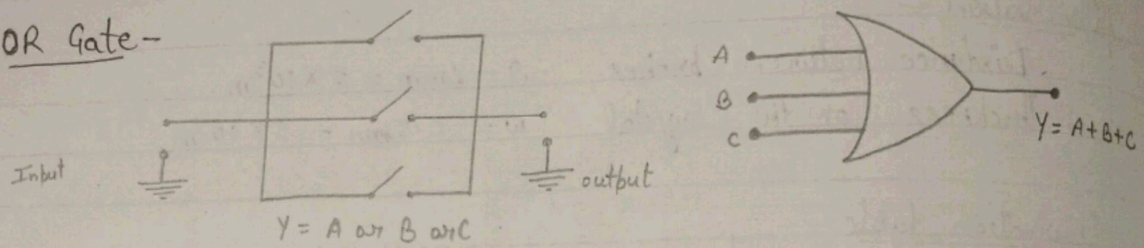 OR Gate-
Input
output
Y = A or B or C
A
B
C
Y = A+B+C